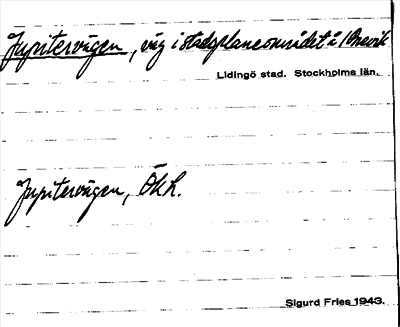 Jupitervägen, väg i stadsplaneområdet å Brevik
Lidingö stad. Stockholms län.
Jupitervägen, Ök h.
Sigurd Fries 1943.